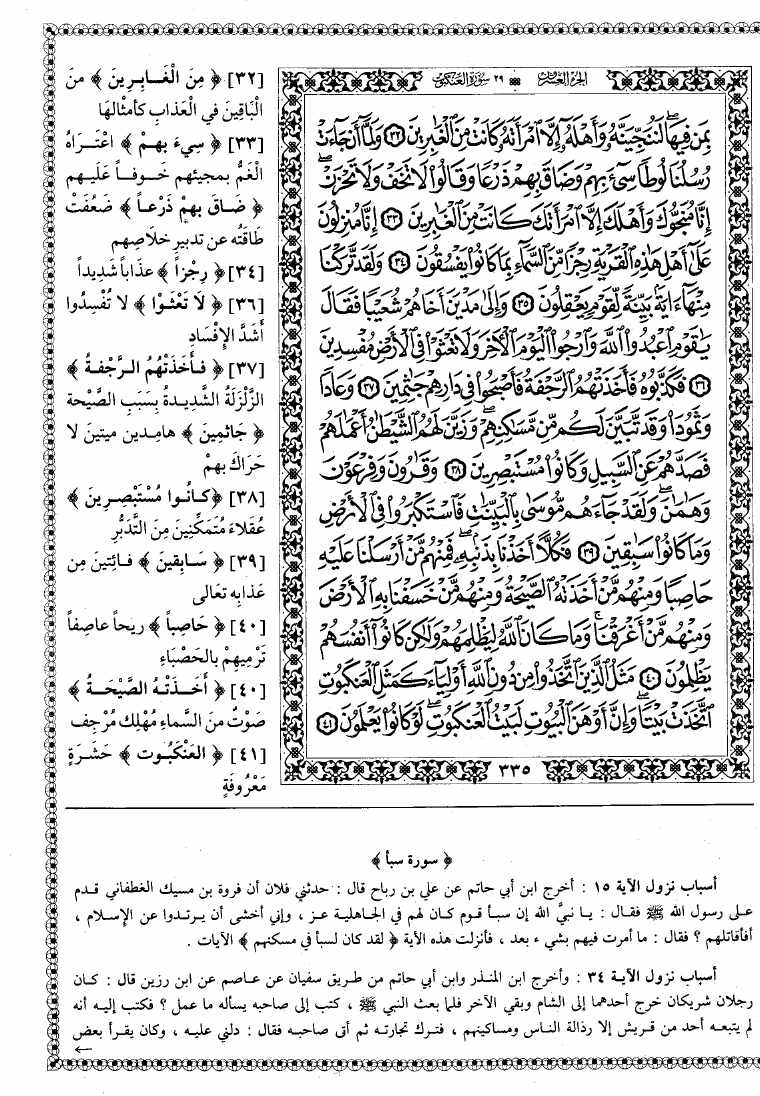 الجزء العشرون ٢٩ سورة العنكبوت
بِمَن فِيهَا لَنُنَجِّيَنَّهُۥ وَأَهْلَهُۥٓ إِلَّا ٱمْرَأَتَهُۥ كَانَتْ مِنَ ٱلْغَٰبِرِينَ ٣٢ وَلَمَّآ أَن جَآءَتْ
رُسُلُنَا لُوطًا سِىٓءَ بِهِمْ وَضَاقَ بِهِمْ ذَرْعًا وَقَالُوا۟ لَا تَخَفْ وَلَا تَحْزَنْ
إِنَّا مُنَجُّوكَ وَأَهْلَكَ إِلَّا ٱمْرَأَتَكَ كَانَتْ مِنَ ٱلْغَٰبِرِينَ ٣٣ إِنَّا مُنزِلُونَ
عَلَىٰٓ أَهْلِ هَٰذِهِ ٱلْقَرْيَةِ رِجْزًا مِّنَ ٱلسَّمَآءِ بِمَا كَانُوا۟ يَفْسُقُونَ ٣٤ وَلَقَد تَّرَكْنَا
مِنْهَآ ءَايَةًۢ بَيِّنَةً لِّقَوْمٍ يَعْقِلُونَ ٣٥ وَإِلَىٰ مَدْيَنَ أَخَاهُمْ شُعَيْبًا فَقَالَ
يَٰقَوْمِ ٱعْبُدُوا۟ ٱللَّهَ وَٱرْجُوا۟ ٱلْيَوْمَ ٱلْءَاخِرَ وَلَا تَعْثَوْا۟ فِى ٱلْأَرْضِ مُفْسِدِينَ
٣٦ فَكَذَّبُوهُ فَأَخَذَتْهُمُ ٱلرَّجْفَةُ فَأَصْبَحُوا۟ فِى دَارِهِمْ جَٰثِمِينَ ٣٧ وَعَادًا
وَثَمُودَا۟ وَقَد تَّبَيَّنَ لَكُم مِّن مَّسَٰكِنِهِمْ وَزَيَّنَ لَهُمُ ٱلشَّيْطَٰنُ أَعْمَٰلَهُمْ
فَصَدَّهُمْ عَنِ ٱلسَّبِيلِ وَكَانُوا۟ مُسْتَبْصِرِينَ ٣٨ وَقَٰرُونَ وَفِرْعَوْنَ
وَهَٰمَٰنَ وَلَقَدْ جَآءَهُم مُّوسَىٰ بِٱلْبَيِّنَٰتِ فَٱسْتَكْبَرُوا۟ فِى ٱلْأَرْضِ
وَمَا كَانُوا۟ سَٰبِقِينَ ٣٩ فَكُلًّا أَخَذْنَا بِذَنۢبِهِۦ فَمِنْهُم مَّنْ أَرْسَلْنَا عَلَيْهِ
حَاصِبًا وَمِنْهُم مَّنْ أَخَذَتْهُ ٱلصَّيْحَةُ وَمِنْهُم مَّنْ خَسَفْنَا بِهِ ٱلْأَرْضَ
وَمِنْهُم مَّنْ أَغْرَقْنَا وَمَا كَانَ ٱللَّهُ لِيَظْلِمَهُمْ وَلَٰكِن كَانُوٓا۟ أَنفُسَهُمْ
يَظْلِمُونَ ٤٠ مَثَلُ ٱلَّذِينَ ٱتَّخَذُوا۟ مِن دُونِ ٱللَّهِ أَوْلِيَآءَ كَمَثَلِ ٱلْعَنكَبُوتِ
ٱتَّخَذَتْ بَيْتًا وَإِنَّ أَوْهَنَ ٱلْبُيُوتِ لَبَيْتُ ٱلْعَنكَبُوتِ لَوْ كَانُوا۟ يَعْلَمُونَ ٤١
٣٣٥
[٣٢] ﴿ مِنَ الْغَابِرِينَ ﴾ منَ
الْبَاقِينَ في الْعَذابِ كأمثالها
[٣٣] ﴿ سِيءَ بهِمْ ﴾ اعْتَرَاهُ
الْغَمُّ بمجيئهم خَوفاً عَلَيهم
﴿ ضَاقَ بهِمْ ذَرْعاً ﴾ ضَعُفَتْ
طَاقَتُه عن تدبيرِ خلاصِهم
[٣٤] ﴿ رِجْزاً ﴾ عذاباً شديداً
[٣٦] ﴿ لا تَعْثَوْا ﴾ لا تُفْسِدُوا
أَشَدَّ الإِفْسَادِ
[٣٧] ﴿ فَأَخَذَتْهُمُ الرَّجْفَةُ ﴾
الزَّلْزَلَةُ الشَّدِيدةُ بِسَبَبِ الصَّيْحة
﴿ جَاثِمِينَ ﴾ هامِدين ميتينَ لا
حَرَاكَ بهِمْ
[٣٨] ﴿ كانُوا مُسْتَبْصِرِينَ ﴾
عُقَلاءَ مُتَمَكِّنِينَ مِنَ التَّدَبُّرِ
[٣٩] ﴿ سَابِقينَ ﴾ فائِتينَ مِن
عَذابِه تعالى
[٤٠] ﴿ حَاصِباً ﴾ ريحاً عاصِفاً
تَرْمِيهمْ بالحَصْباءِ
[٤٠] ﴿ أَخَذَتْهُ الصَّيْحَةُ ﴾
صَوْتٌ منَ السَّماءِ مُهْلِك مُرْجِف
[٤١] ﴿ العَنْكَبُوت ﴾ حَشَرَةٍ
مَعْرُوفَةٍ
﴿ سورة سبأ ﴾
أسباب نزول الآية ١٥ : أخرج ابن أبي حاتم عن علي بن رباح قال : حدثني فلان أن فروة بن مسيك الغطفاني قدم
على رسول الله ﷺ فقال : يا نبيَّ الله إن سبأ قوم كان لهم في الجاهلية عز ، وإني أخشى أن يرتدوا عن الإسلام ،
أفأقاتلهم ؟ فقال : ما أمرت فيهم بشيء بعد ، فأنزلت هذه الآية ﴿ لقد كان لسبأ في مسكنهم ﴾ الآيات .
أسباب نزول الآية ٣٤ : وأخرج ابن المنذر وابن أبي حاتم من طريق سفيان عن عاصم عن ابن رزين قال : كان
رجلان شريكان خرج أحدهما إلى الشام وبقي الآخر فلما بعث النبي ﷺ ، كتب إلى صاحبه يسأله ما عمل ؟ فكتب إليه أنه
لم يتبعه أحد من قريش إلا رذالة الناس ومساكينهم ، فترك تجارته ثم أتى صاحبه فقال : دلني عليه ، وكان يقرأ بعض
←